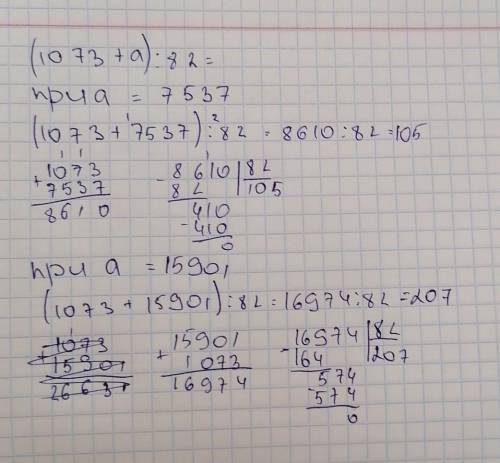 (1073+a):82=
при a = 7537
(1073+7537):82 = 8610:82=105
1073
+7537
8610
- 8610 | 82
82 | 105
410
-410
0
при a = 15901
(1073+15901):82=16974:82=207
1073
+15901
26631
15901
+ 1073
16974
-16974 | 82
164 | 207
574
-574
0